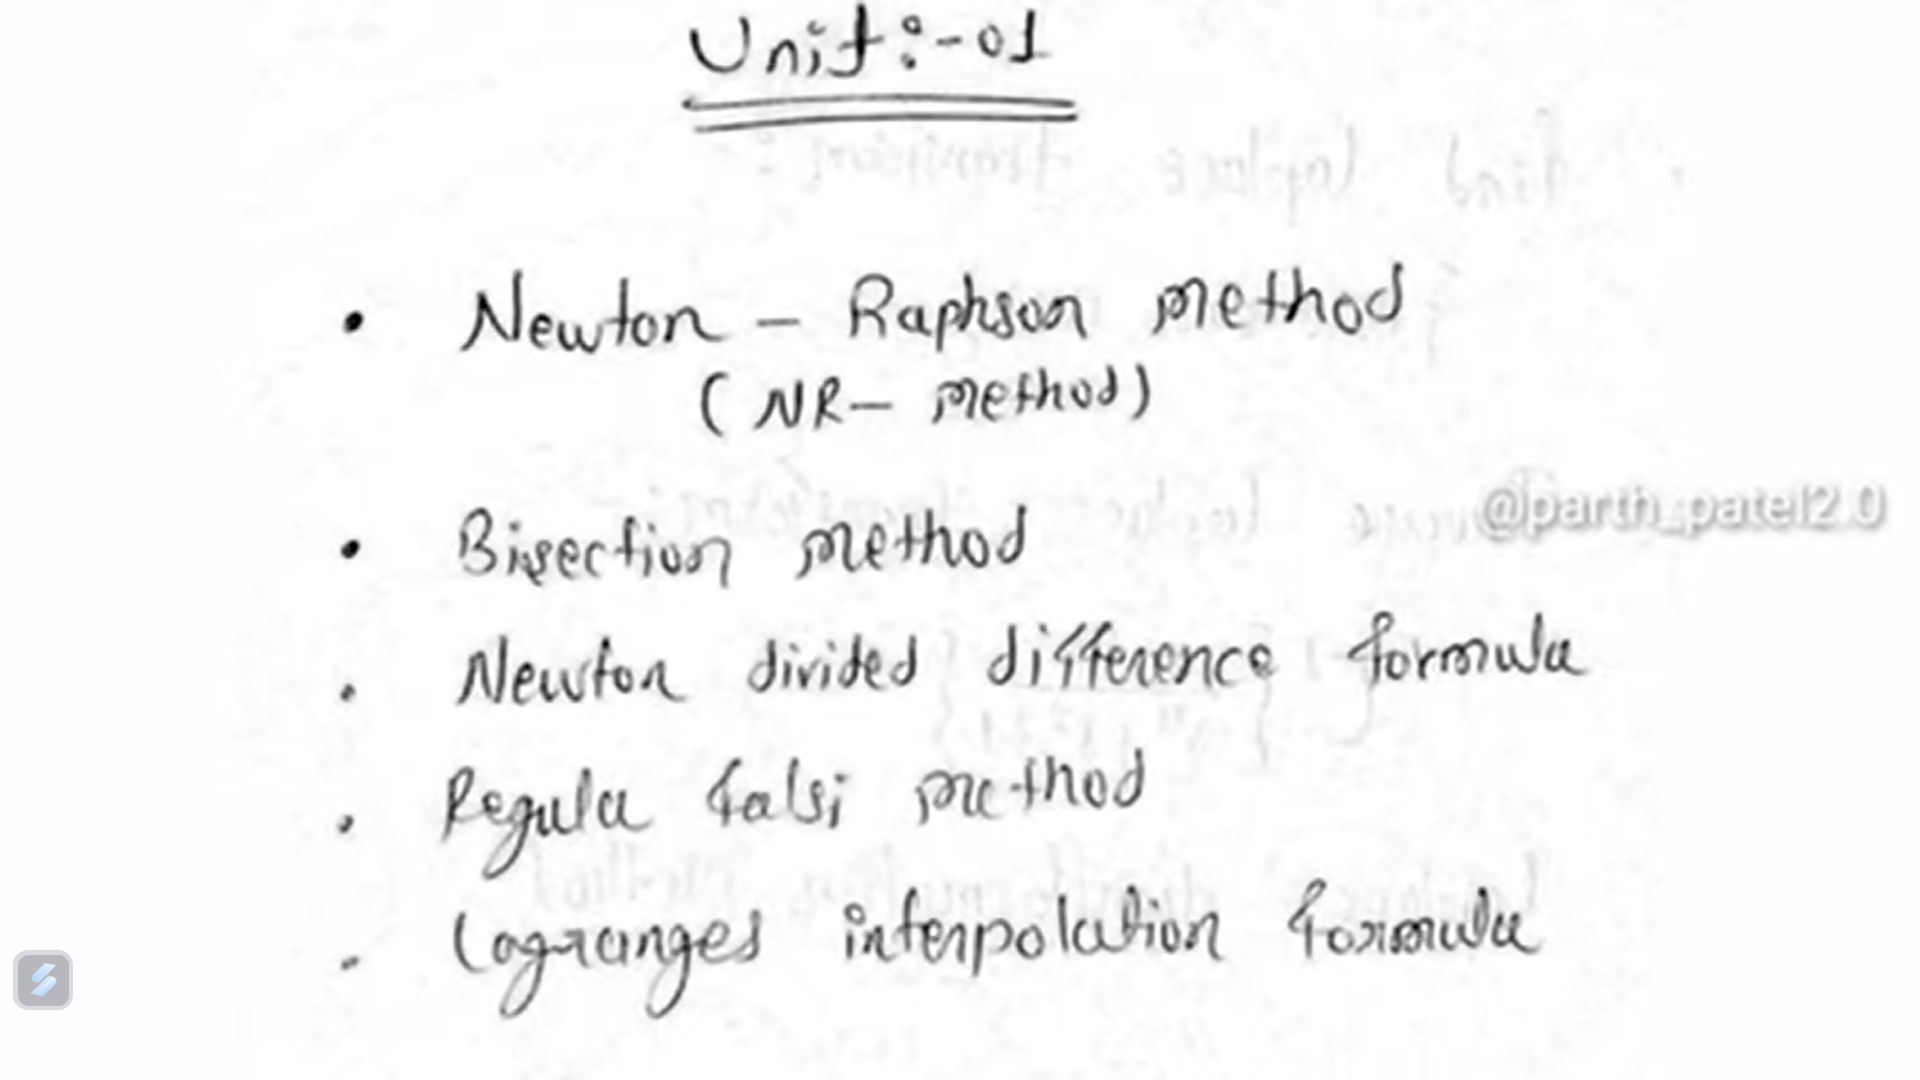 Unit:-01
• Newton - Raphson method
(NR- method)
• Bisection method
@parth_patel2.0
• Newton divided difference formula
• Regula falsi method
• Lagranges interpolation formula